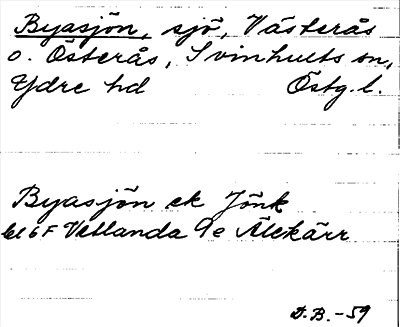 Byasjön, sjö, Västerås
o. Österås, Svinhults sn,
Ydre hd Östg. l.
Byasjön ek Jönk
bl 6 F Vetlanda 9e Älekärr
D.B.-59